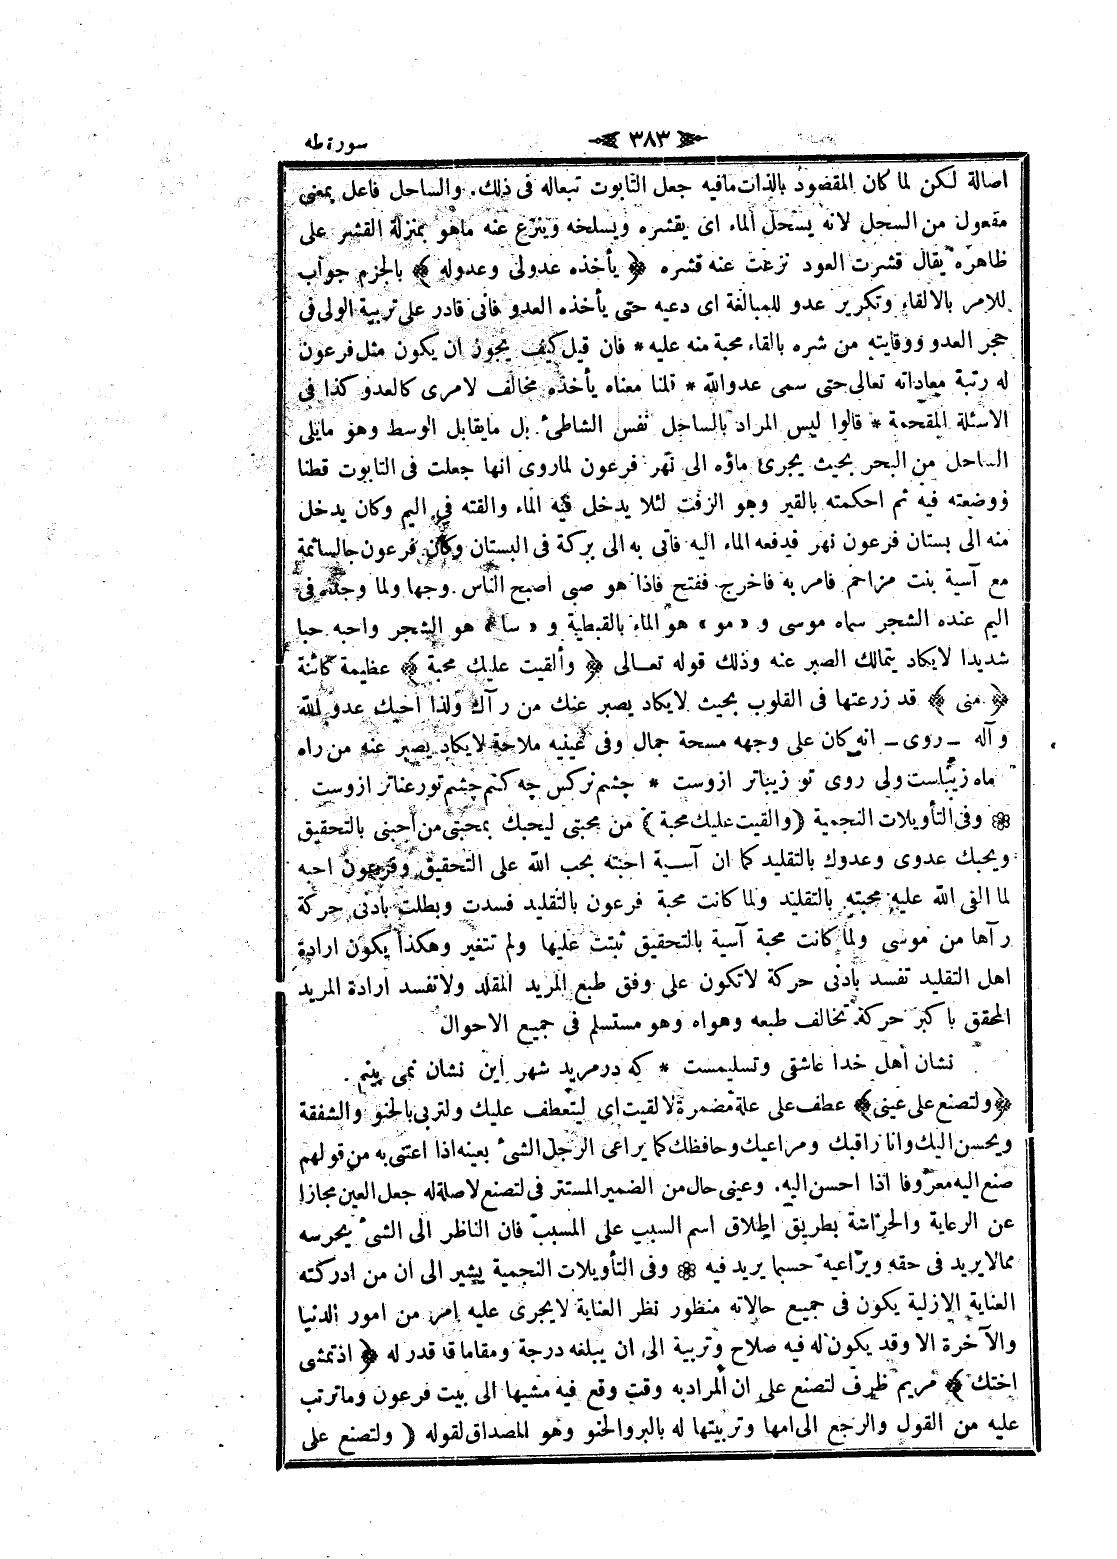 سورة طه
﴿ ٣٨٣ ﴾
اصالة لكن لما كان المقصود بالذات مافيه جعل التابوت تبعاله فى ذلك. والساحل فاعل بمعنى
مفعول من السحل لانه يسحل الماء اى يقشره ويسلخه وينزع عنه ماهو بمنزلة القشر على
ظاهره يقال قشرت العود نزعت عنه قشره ﴿ يأخذه عدولى وعدوله ﴾ بالجزم جواب
للامر بالالقاء وتكرير عدو للمبالغة اى دعيه حتى يأخذه العدو فانى قادر على تربية الولى فى
حجر العدو ووقايته من شره بالقاء محبة منه عليه * فان قيل كيف يجوز ان يكون مثل فرعون
له رتبة معاداته تعالى حتى سمى عدوالله * قلنا معناه يأخذه مخالف لامرى كالعدو كذا فى
الاسئلة المقحمة * قالوا ليس المراد بالساحل نفس الشاطئ بل مايقابل الوسط وهو مايلى
الساحل من البحر بحيث يجرى ماؤه الى نهر فرعون لماروى انها جعلت فى التابوت قطنا
ووضعته فيه ثم احكمته بالقير وهو الزفت لئلا يدخل فيه الماء والقته فى اليم وكان يدخل
منه الى بستان فرعون نهر فدفعه الماء اليه فاتى به الى بركة فى البستان وكان فرعون جالسا ثمة
مع آسية بنت مزاحم فامر به فاخرج ففتح فاذا هو صبى اصبح الناس وجها ولما وجده فى
اليم عنده الشجر سماه موسى و « مو » هو الماء بالقبطية و « سا » هو الشجر واحبه حبا
شديدا لايكاد يتمالك الصبر عنه وذلك قوله تعـالى ﴿ وألقيت عليك محبة ﴾ عظيمة كائنة
﴿ منى ﴾ قد زرعتها فى القلوب بحيث لايكاد يصبر عنك من رآك ولذا احبك عدو الله
وآله ـ روى ـ انه كان على وجهه مسحة جمال وفى عينيه ملاحة لايكاد يصبر عنه من راه
ماه زيباست ولى روى تو زيباتر ازوست * چشم نركس چه كنم چشم تورعناتر ازوست
❁ وفى التأويلات النجمية ( والقيت عليك محبة ) من محبتى ليحبك بمحبتى من احبنى بالتحقيق
ويحبك عدوى وعدوك بالتقليد كما ان آسـية احبته بحب الله على التحقيق وفرعون احبه
لما القى الله عليه محبته بالتقليد ولما كانت محبة فرعون بالتقليد فسدت وبطلت بادنى حركة
رآها من موسى ولما كانت محبة آسية بالتحقيق ثبتت عليها ولم تتغير وهكذا يكون ارادة
اهل التقليد تفسد بأدنى حركة لاتكون على وفق طبع المريد المقلد ولاتفسد ارادة المريد
المحقق باكبر حركة تخالف طبعه وهواه وهو مستسلم فى جميع الاحوال
نشان اهل خدا عاشقى وتسليمست * كه درمريد شهر اين نشان نمى بينم .
﴿ ولتصنع على عينى ﴾ عطف على علة مضمرة لالقيت اى ليتعطف عليك ولتربى بالحنو والشفقة
ويحسن اليك وانا راقبك ومراعيك وحافظك كما يراعى الرجل الشئ بعينه اذا اعتنى به من قولهم
صنع اليه معروفا اذا احسن اليه. وعينى حال من الضمير المستتر فى لتصنع لاصلة له جعل العين مجازا
عن الرعاية والحراسة بطريق اطلاق اسم السبب على المسبب فان الناظر الى الشئ يحرسه
ممالا يريد فى حقه ويراعيه حسبما يريد فيه ❁ وفى التأويلات النجمية يشير الى ان من ادركته
العناية الازلية يكون فى جميع حالاته منظور نظر العناية لايجرى عليه امر من امور الدنيا
والآخرة الا وقد يكون له فيه صلاح وتربية الى ان يبلغه درجة ومقاما قد قدر له ﴿ اذتمشى
اختك ﴾ مريم ظرف لتصنع على ان المراد به وقت وقع فيه مشيها الى بيت فرعون وماترتب
عليه من القول والرجع الى امها وتربيتها له بالبر والحنو وهو المصداق لقوله ( ولتصنع على